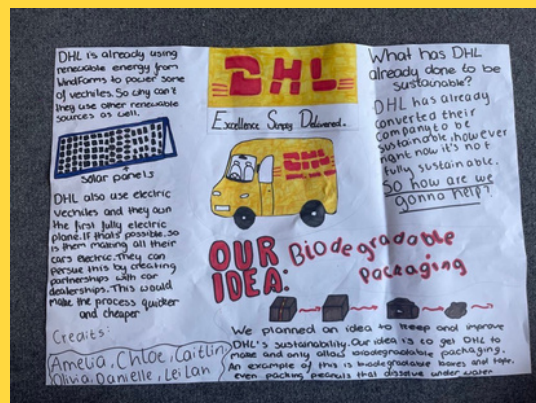 DHL is already using
renewable energy from
WindFarms to power some
of vechiles. So why can't
they use other renewable
sources as well.
Solar panels
DHL also use electric
vechiles and they own
the first fully electric
plane. If thats possible, so
is them making all their
cars electric. They can
persue this by creating
partnerships with car
dealerships. This would
make the process quicker
and cheaper
Credits:
Amelia, Chloe, Caitlin,
Olivia, Danielle, Lei Lan
DHL
Excellence Simply Delivered.
DHL
OUR
IDEA:
Biodegradable
Packaging
We planned an idea to keep and improve
DHL's sustainability. Our idea is to get DHL to
make and only allow biodegradable packaging.
An example of this is biodegradable boxes and tape,
even packing peanuts that dissolve under water
What has DHL
already done to be
sustainable?
DHL has already
converted their
company to be
sustainable, however
right now it's not
fully sustainable.
So how are we
gonna help?